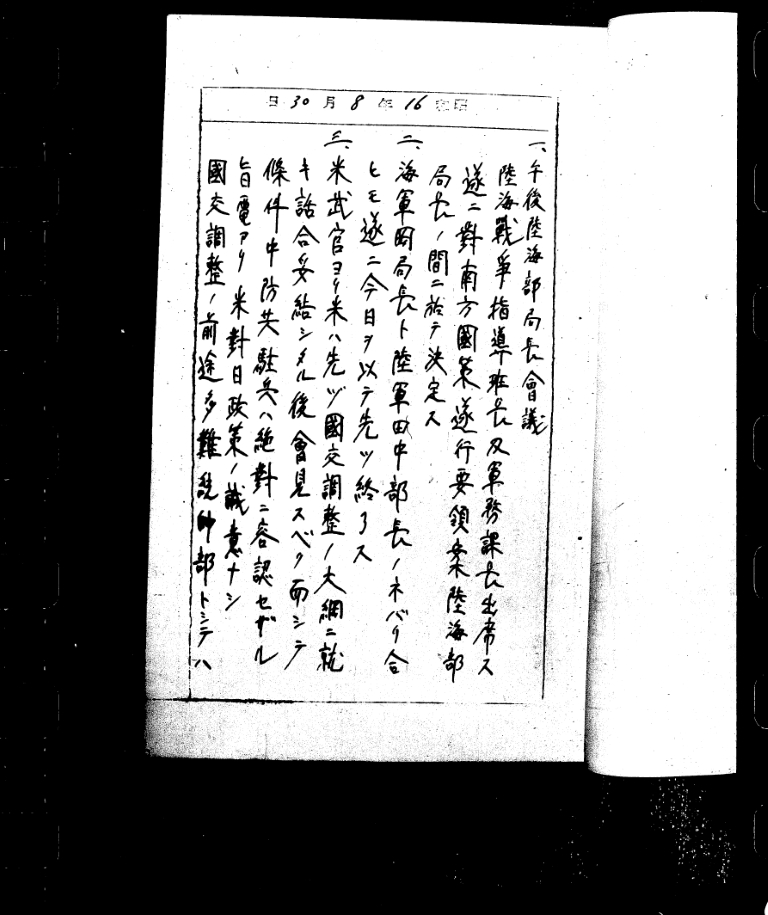 昭和16年8月30日
一、午後陸海部局長會議
陸海戰爭指導班長及軍務課長出席ス
遂ニ對南方國策遂行要領案陸海部
局長ノ間ニ於テ決定ス
二、海軍岡局長ト陸軍田中部長ノネバリ合
ヒモ遂ニ今日ヲ以テ先ヅ終了ス
三、米武官ヨリ米ハ先ヅ國交調整ノ大綱ニ就
キ話合妥結シタル後會見スベク而シテ
條件中防共駐兵ハ絶對ニ容認セザル
旨電アリ米對日政策ノ誠意ナシ
國交調整ノ前途多難統帥部トシテハ